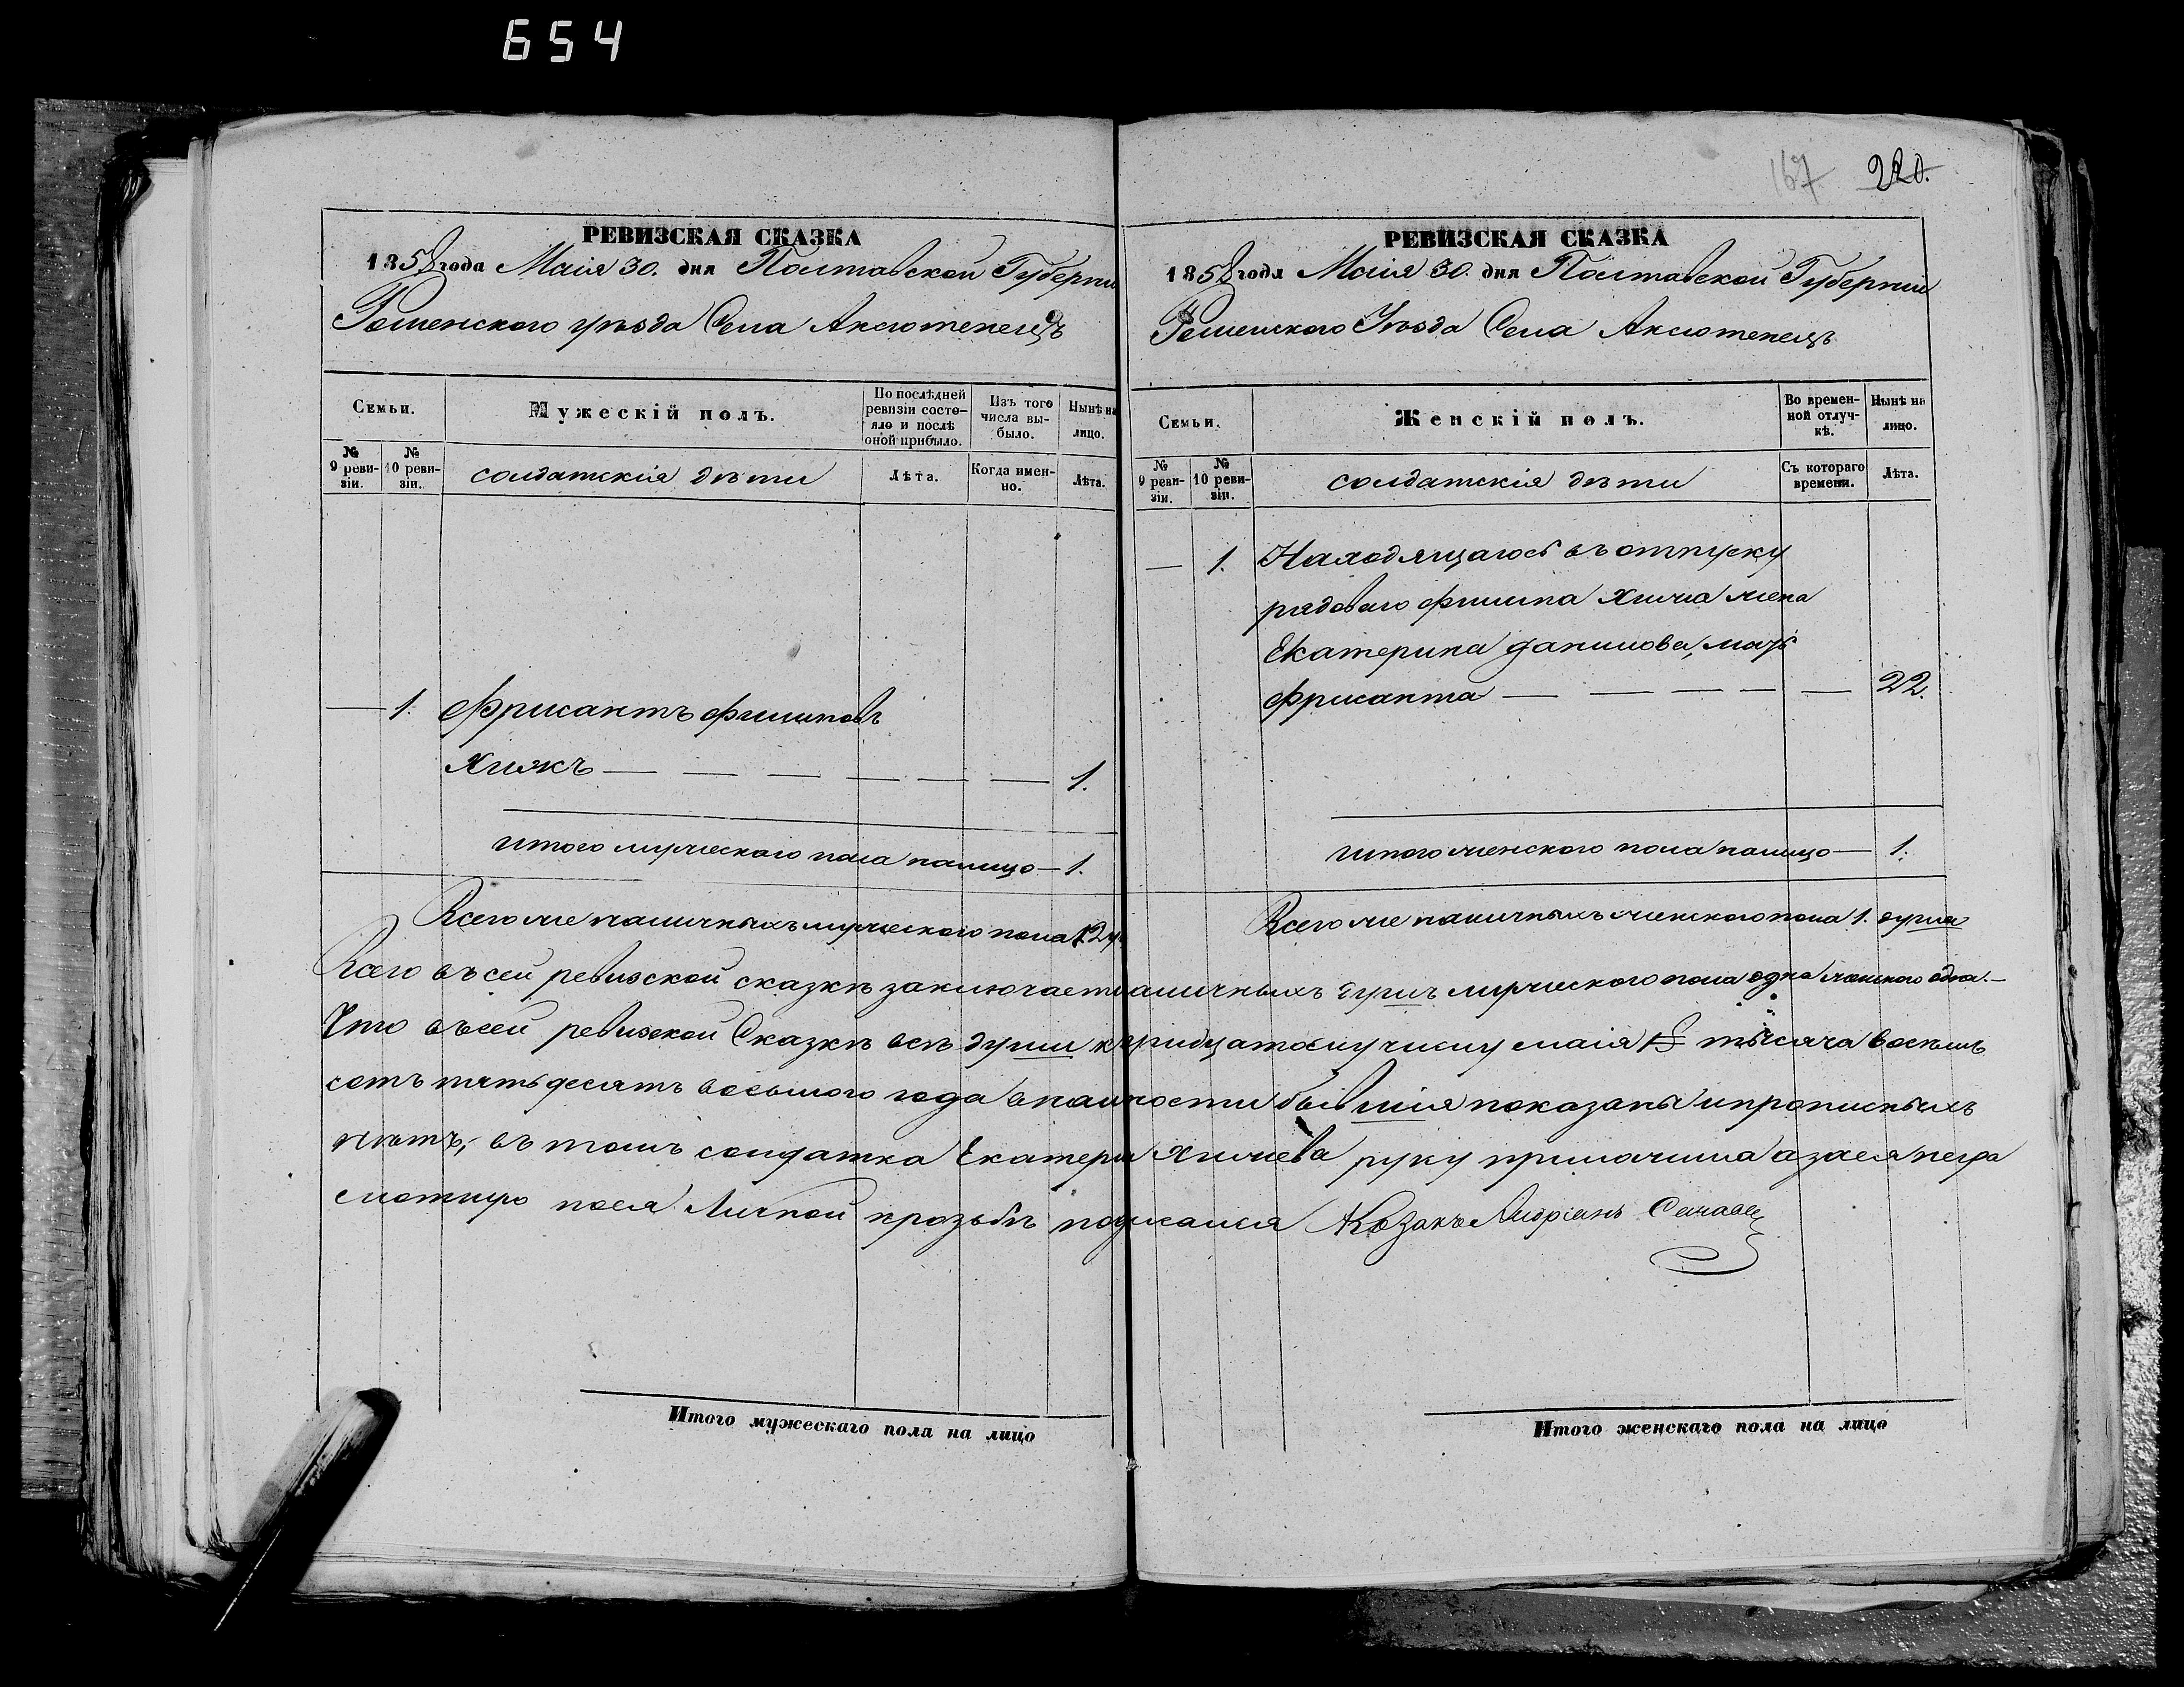 654
167 220.
РЕВИЗСКАЯ СКАЗКА
1858 года Маія 30. дня Полтавской Губерніи
Роменского уѣзда Села Аксютенецъ
Семьи.
Мужескій полъ.
По послѣдней ревизіи состояло и послѣ оной прибыло.
Изъ того числа выбыло.
Нынѣ на лицо.
№ 9 ревизіи.
№ 10 ревизіи.
солдатскія дѣти
Лѣта.
Когда именно.
Лѣта.
— 1. Фрисантъ Филиповъ
Хижкъ — — — — — — 1.
итого мужеского пола налицо — 1.
Всего же наличныхъ мужеского пола 1
РЕВИЗСКАЯ СКАЗКА
1858 года Маія 30. дня Полтавской Губерніи
Роменского Уѣзда Села Аксютенецъ
Семьи.
Женскій полъ.
Во временной отлучкѣ.
Нынѣ на лицо.
№ 9 ревизіи.
№ 10 ревизіи.
солдатскія дѣти
Съ котораго времени.
Лѣта.
— 1. Находящагось въ отпуску
рядоваго Филипа жена
Екатерина Данилова, мать
Фрисанта — — — — — 22.
итого женского пола налицо — 1.
Всего же наличныхъ женского пола 1. душа
Всего въ сей ревизской сказкѣ заключает наличныхъ душъ мужеского пола одна женского одна. —
Что въ сей ревизской Сказкѣ всѣ души к тридцатому числу маія тысяча восемь
сотъ пятьдесятъ восьмого года в наличности бывшія показаны и прописныхъ
нѣтъ, въ томъ солдатка Екатери руку приложила а за ея негра
мотную поея Личной прозьбѣ Козакъ
Итого мужескаго пола на лицо
Итого женскаго пола на лицо